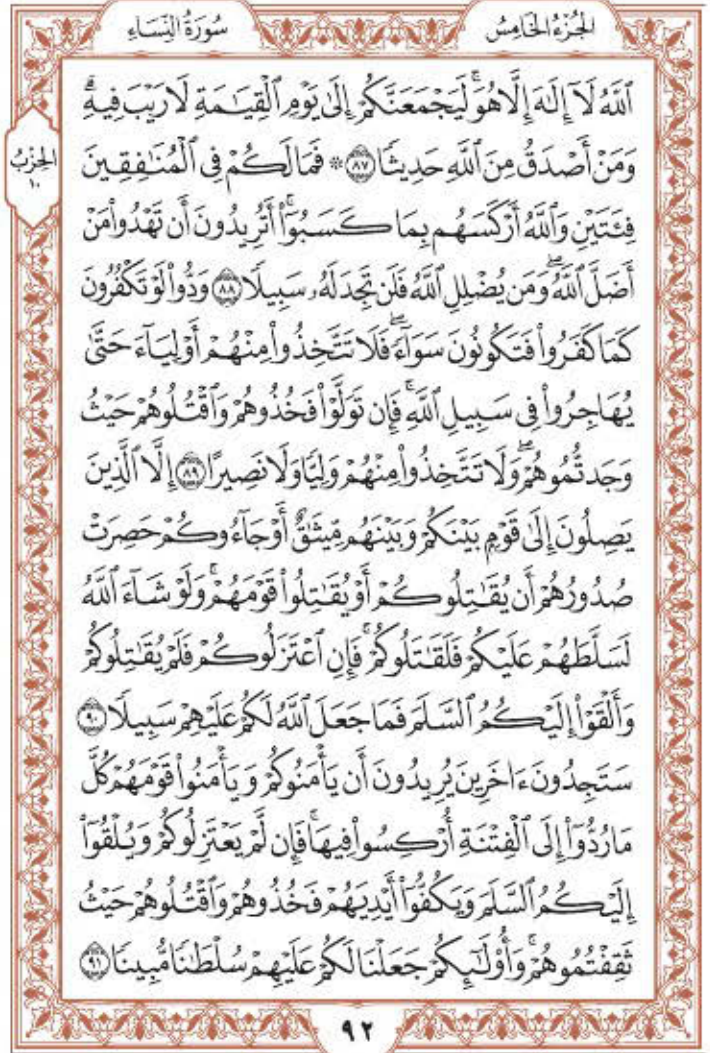 الجُزْءُ الخَامِسُ
سُورَةُ النِّسَاءِ
ٱللَّهُ لَآ إِلَٰهَ إِلَّا هُوَۚ لَيَجْمَعَنَّكُمْ إِلَىٰ يَوْمِ ٱلْقِيَٰمَةِ لَا رَيْبَ فِيهِۗ
وَمَنْ أَصْدَقُ مِنَ ٱللَّهِ حَدِيثًا ٨٧ ۞ فَمَا لَكُمْ فِي ٱلْمُنَٰفِقِينَ
فِئَتَيْنِ وَٱللَّهُ أَرْكَسَهُم بِمَا كَسَبُوٓاْۚ أَتُرِيدُونَ أَن تَهْدُواْ مَنْ
أَضَلَّ ٱللَّهُۖ وَمَن يُضْلِلِ ٱللَّهُ فَلَن تَجِدَ لَهُۥ سَبِيلًا ٨٨ وَدُّواْ لَوْ تَكْفُرُونَ
كَمَا كَفَرُواْ فَتَكُونُونَ سَوَآءًۖ فَلَا تَتَّخِذُواْ مِنْهُمْ أَوْلِيَآءَ حَتَّىٰ
يُهَاجِرُواْ فِي سَبِيلِ ٱللَّهِۚ فَإِن تَوَلَّوْاْ فَخُذُوهُمْ وَٱقْتُلُوهُمْ حَيْثُ
وَجَدتُّمُوهُمْۖ وَلَا تَتَّخِذُواْ مِنْهُمْ وَلِيًّا وَلَا نَصِيرًا ٨٩ إِلَّا ٱلَّذِينَ
يَصِلُونَ إِلَىٰ قَوْمِۭ بَيْنَكُمْ وَبَيْنَهُم مِّيثَٰقٌ أَوْ جَآءُوكُمْ حَصِرَتْ
صُدُورُهُمْ أَن يُقَٰتِلُوكُمْ أَوْ يُقَٰتِلُواْ قَوْمَهُمْۚ وَلَوْ شَآءَ ٱللَّهُ
لَسَلَّطَهُمْ عَلَيْكُمْ فَلَقَٰتَلُوكُمْۚ فَإِنِ ٱعْتَزَلُوكُمْ فَلَمْ يُقَٰتِلُوكُمْ
وَأَلْقَوْاْ إِلَيْكُمُ ٱلسَّلَمَ فَمَا جَعَلَ ٱللَّهُ لَكُمْ عَلَيْهِمْ سَبِيلًا ٩٠
سَتَجِدُونَ ءَاخَرِينَ يُرِيدُونَ أَن يَأْمَنُوكُمْ وَيَأْمَنُواْ قَوْمَهُمْ كُلَّ
مَا رُدُّوٓاْ إِلَى ٱلْفِتْنَةِ أُرْكِسُواْ فِيهَاۚ فَإِن لَّمْ يَعْتَزِلُوكُمْ وَيُلْقُوٓاْ
إِلَيْكُمُ ٱلسَّلَمَ وَيَكُفُّوٓاْ أَيْدِيَهُمْ فَخُذُوهُمْ وَٱقْتُلُوهُمْ حَيْثُ
ثَقِفْتُمُوهُمْۚ وَأُوْلَٰٓئِكُمْ جَعَلْنَا لَكُمْ عَلَيْهِمْ سُلْطَٰنًا مُّبِينًا ٩١
الحِزْبُ
١٠
٩٢